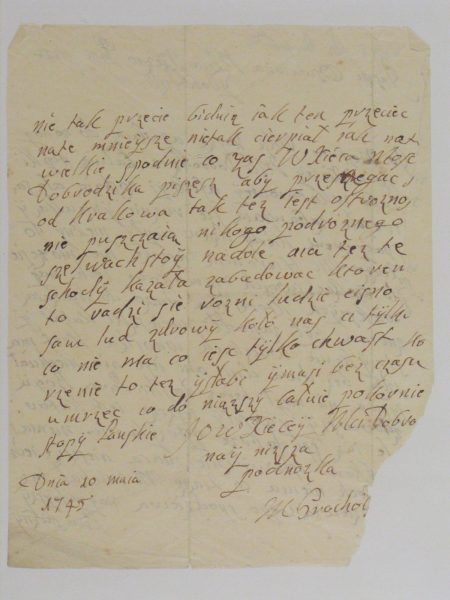 nie tak przecie bidnie jak ten przeciec
nate mnieysze nietak cierpiał jak nat
wielkie spodnie co zas W Xiéca Mość
Dobrodzika piszesz aby przestrzegac
od Krakowa tak tez iest ostrozno
nie puszczaią nikogo podroznego
szelwach stoÿ nadole aia tez te
schody kazała zabudować ktoremi
to radzi się rozni ludzie
sam lud zdrowÿ koło nas a tylko
co nie ma co iesc tylko chwast ko
rzenie to tez słabi ÿ musi bez czasu
umrzec io do całuie pokornie
stopÿ Panskie Xiecej Mci Dobro
nay nizsza
podnozka
Dnia 20 maia
1745
Grochol